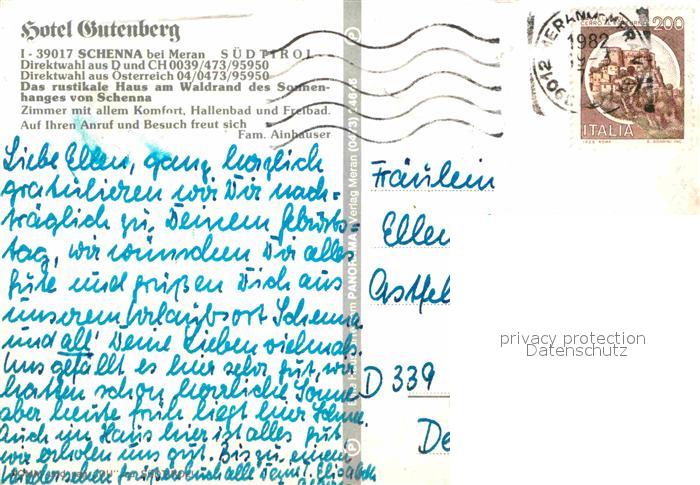 Hotel Gutenberg
I - 39017 SCHENNA bei Meran SÜDTIROL
Direktwahl aus D und CH 0039/473/95950
Direktwahl aus Österreich 04/0473/95950
Das rustikale Haus am Waldrand des Sonnen-
hanges von Schenna
Zimmer mit allem Komfort, Hallenbad und Freibad.
Auf Ihren Anruf und Besuch freut sich
Fam. Ainhauser
Liebe Ellen, ganz herzlich
gratulieren wir Dir nach-
träglich zu Deinem Geburts-
tag, wir wünschen Dir alles
gute und grüßen Dich aus
unserem Urlaubsort Schenna
und all' Deine Lieben vielmals.
Uns gefällt es hier sehr gut, wir
hatten schon herrliche Sonne
aber heute früh liegt hier Schnee.
Auch im Haus hier ist alles gut
wir erholen uns gut. Bis zu einem
Wiedersehen grüßen Euch alle
PANORAMA Verlag Meran (0473)
Fräulein
Ellen
D 339
De
MERANO
39012
1982
200
ITALIA
privacy protection
Datenschutz